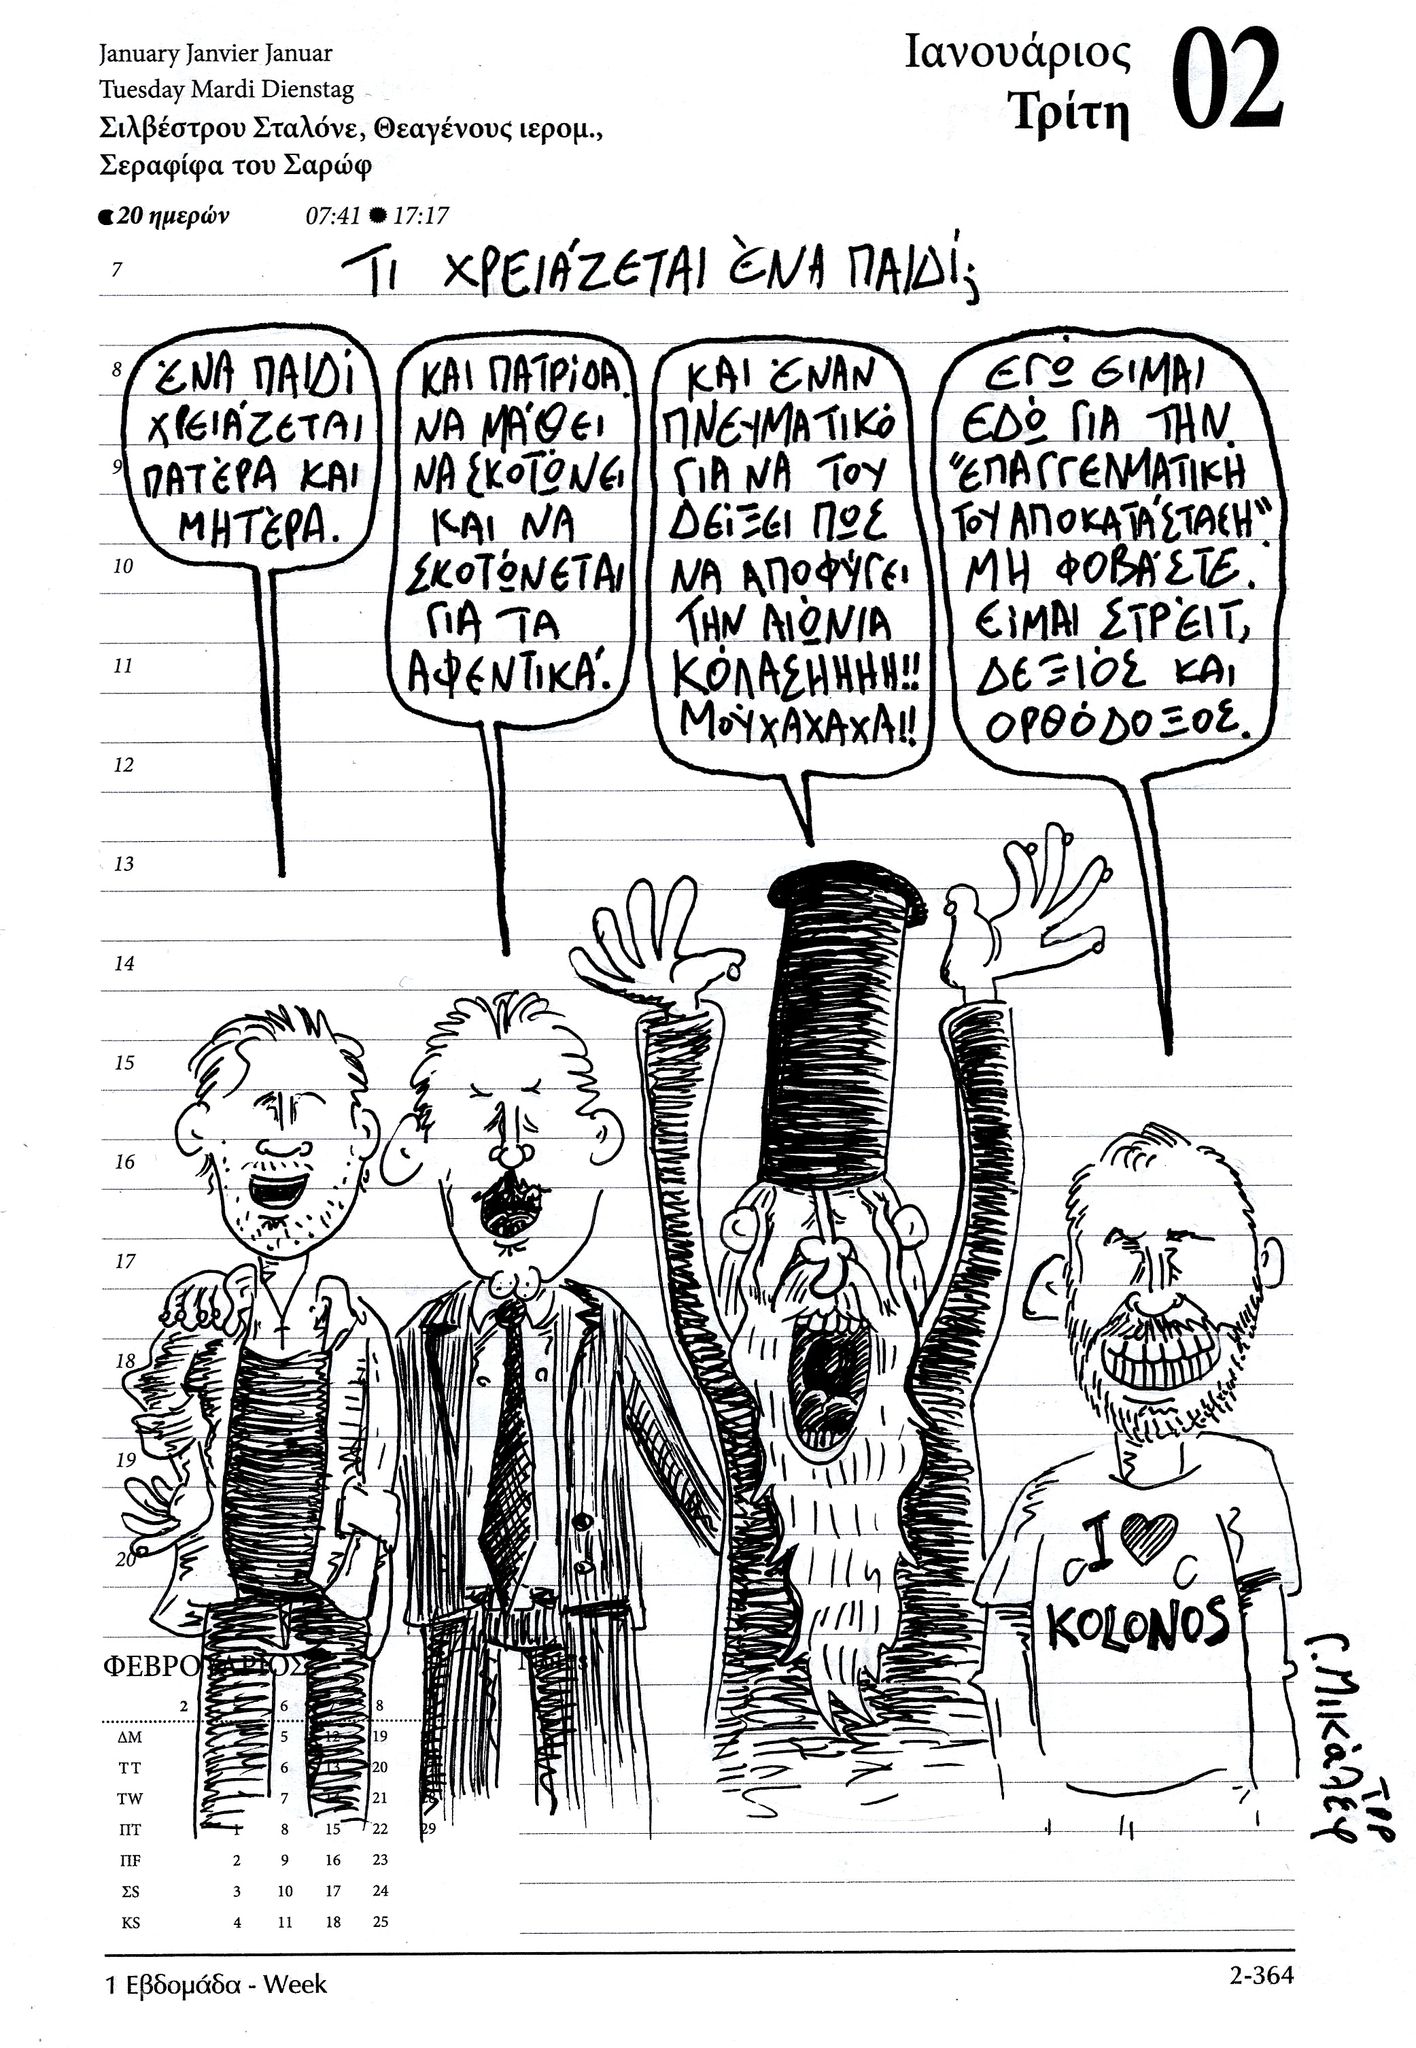 January Janvier Januar
Tuesday Mardi Dienstag
Σιλβέστρου Σταλόνε, Θεαγένους ιερομ.,
Σεραφίφα του Σαρώφ
20 ημερών 07:41 17:17
Ιανουάριος
Τρίτη
02
7
ΤΙ ΧΡΕΙΆΖΕΤΑΙ ΈΝΑ ΠΑΙΔΊ;
8
9
10
11
12
13
14
15
16
17
18
19
20
ΈΝΑ ΠΑΙΔΊ
ΧΡΕΙΆΖΕΤΑΙ
ΠΑΤΈΡΑ ΚΑΙ
ΜΗΤΈΡΑ.
ΚΑΙ ΠΑΤΡΊΔΑ
ΝΑ ΜΆΘΕΙ
ΝΑ ΣΚΟΤΏΝΕΙ
ΚΑΙ ΝΑ
ΣΚΟΤΏΝΕΤΑΙ
ΓΙΑ ΤΑ
ΑΦΕΝΤΙΚΆ.
ΚΑΙ ΈΝΑΝ
ΠΝΕΥΜΑΤΙΚΌ
ΓΙΑ ΝΑ ΤΟΥ
ΔΕΊΞΕΙ ΠΩΣ
ΝΑ ΑΠΟΦΎΓΕΙ
ΤΗΝ ΑΙΏΝΙΑ
ΚΌΛΑΣΗΗΗΗ!!
ΜΟΥΧΑΧΑΧΑ!!
ΕΓΏ ΕΊΜΑΙ
ΕΔΏ ΓΙΑ ΤΗΝ
"ΕΠΑΓΓΕΛΜΑΤΙΚΗ
ΤΟΥ ΑΠΟΚΑΤΆΣΤΑΣΗ".
ΜΗ ΦΟΒΆΣΤΕ.
ΕΊΜΑΙ ΣΤΡΈΙΤ,
ΔΕΞΙΌΣ ΚΑΙ
ΟΡΘΌΔΟΞΟΣ.
I ♥
KOLONOS
Γ. Μικάλεφ
ΤΡΡ
ΦΕΒΡΟΥΑΡΙΟΣ
2 6 8
ΔM 5 12 19
TT 6 13 20
TW 7 21
ΠT 1 8 15 22 29
ΠF 2 9 16 23
ΣS 3 10 17 24
KS 4 11 18 25
1 Εβδομάδα - Week
2-364